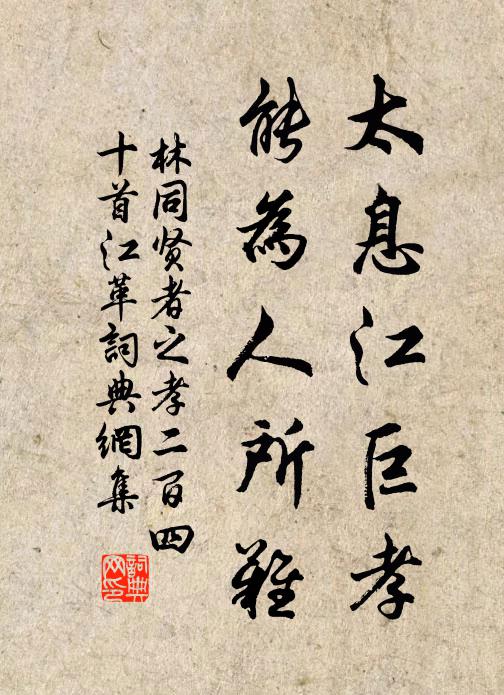 太息江巨孝
能為人所難
林同贤者之孝二百四
十首江革詞典網集
詞典
网印